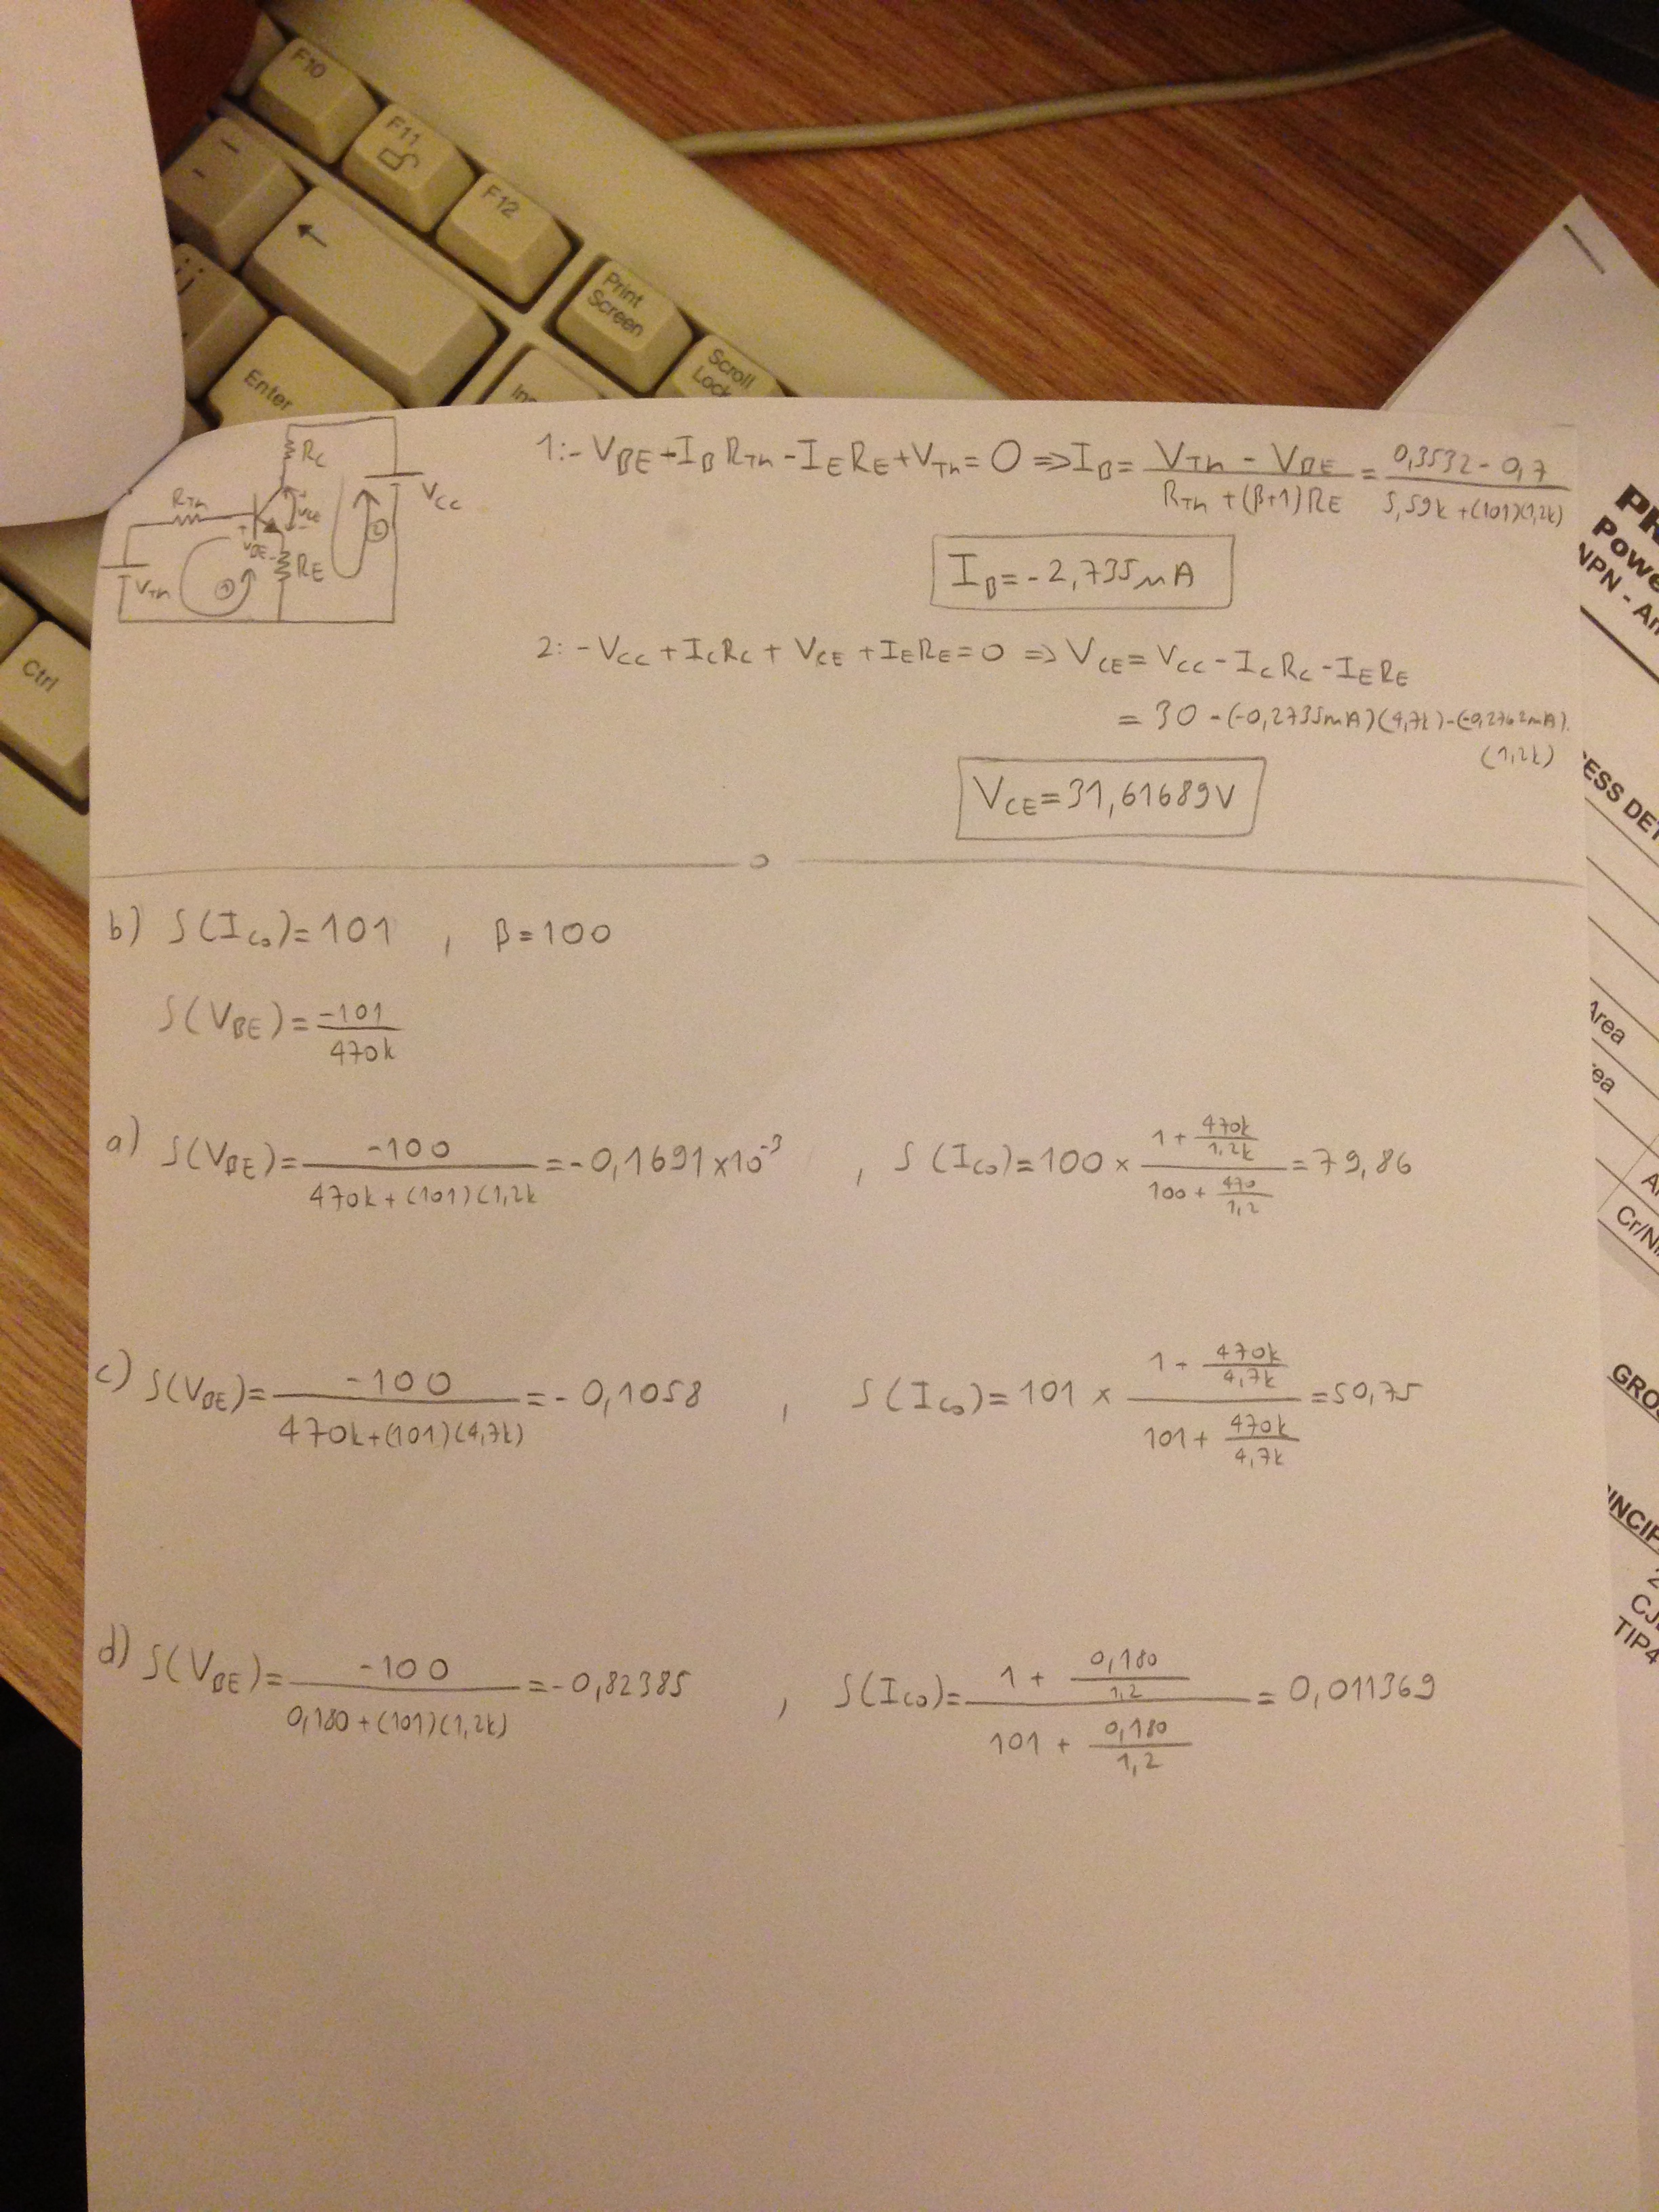 F10
F11
F12
Print
Screen
Scroll
Lock
Enter
Ctrl
R_C
V_CC
R_Th
V_CE
V_BE
R_E
V_Th
1:- V_BE + I_B R_Th - I_E R_E + V_Th = 0 => I_B = (V_Th - V_BE) / (R_Th + (β+1)R_E) = (0,3532 - 0,7) / (5,59k + (101)(1,2k))
I_B = -2,735 μA
2: - V_CC + I_C R_C + V_CE + I_E R_E = 0 => V_CE = V_CC - I_C R_C - I_E R_E
= 30 - (-0,2735mA)(4,7k) - (-0,2762mA).
(1,2k)
V_CE = 31,61689V
b) S(I_co) = 101 , β = 100
S(V_BE) = -101 / 470k
a) S(V_BE) = -100 / (470k + (101)(1,2k = -0,1691 x 10^-3 , S(I_co) = 100 x (1 + 470k/1,2k) / (100 + 470/1,2) = 79,86
c) S(V_BE) = -100 / (470k + (101)(4,7k)) = -0,1058 , S(I_co) = 101 x (1 + 470k/4,7k) / (101 + 470k/4,7k) = 50,75
d) S(V_BE) = -100 / (0,180 + (101)(1,2k)) = -0,82385 , S(I_co) = (1 + 0,180/1,2) / (101 + 0,180/1,2) = 0,011369
Powe
NPN - An
ESS DET
Area
ea
Cr/Ni
GROS
INCIP
CJ
TIP4